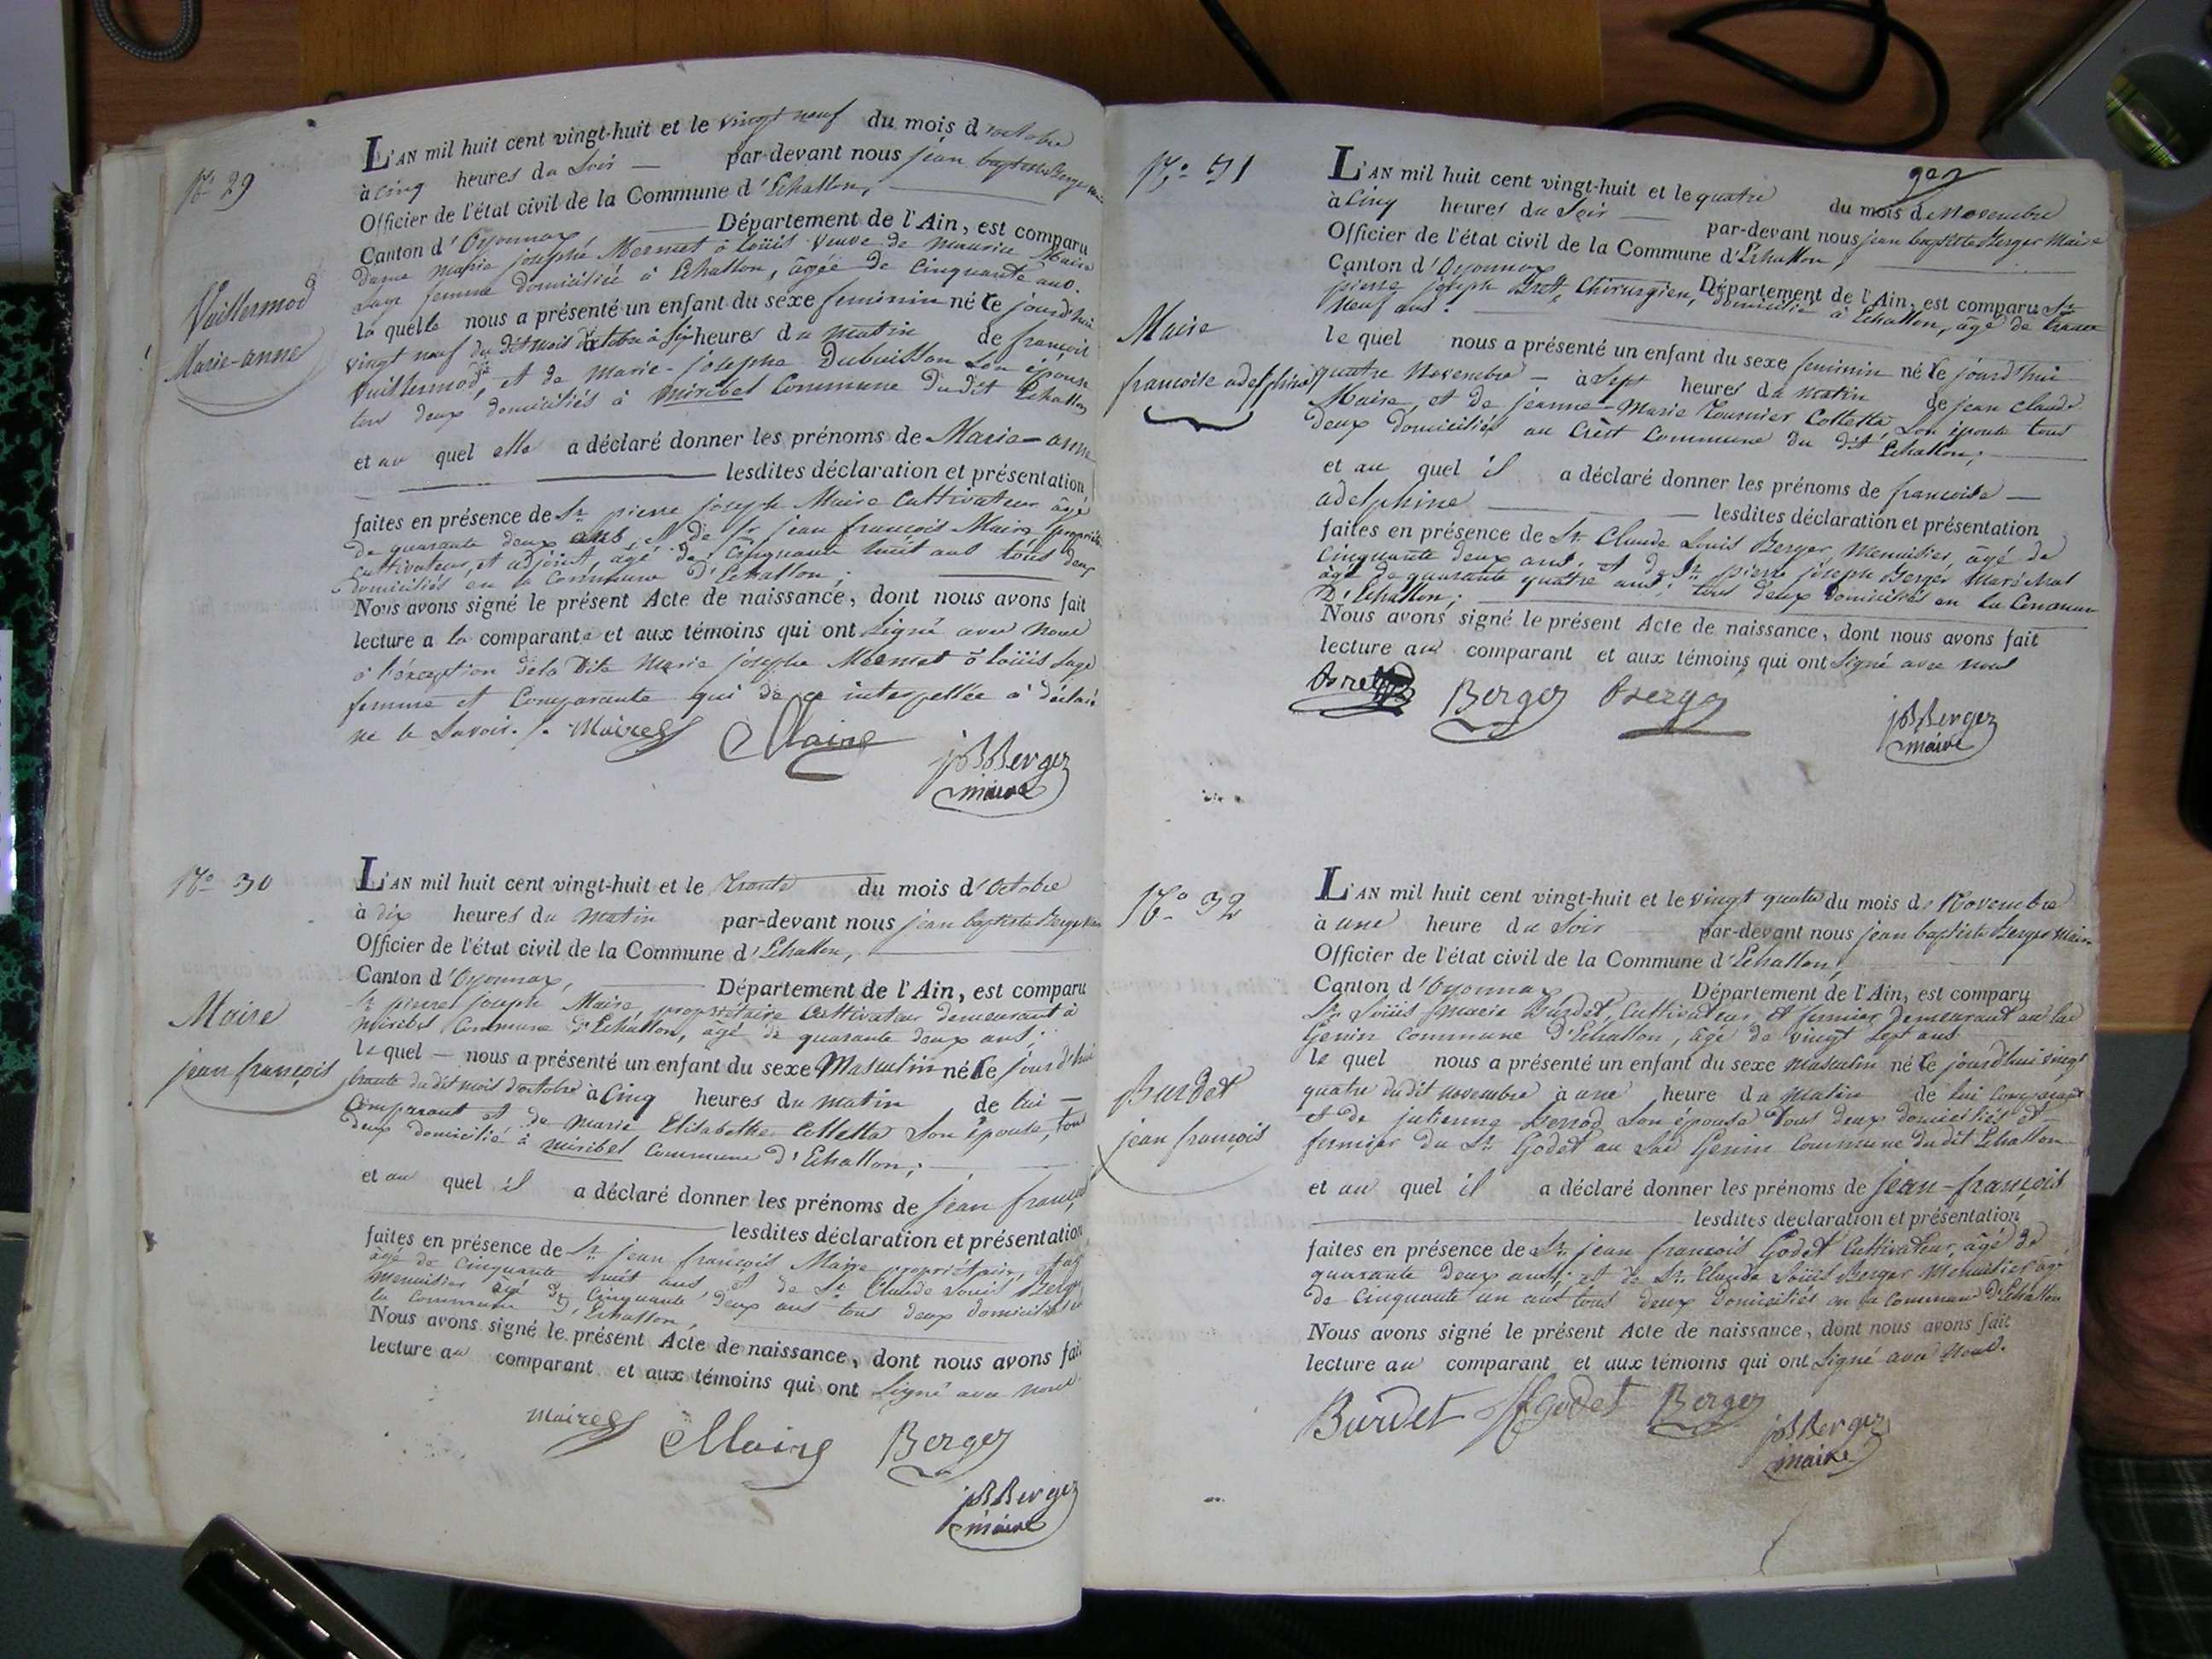 No 29
Vuillermod
Marie-anne
L'AN mil huit cent vingt-huit et le vingt neuf du mois d'octobre
à cinq heures du Soir — par-devant nous jean baptiste Berger maire
Officier de l'état civil de la Commune d'Echallon,
Canton d'Oyonnax, Département de l'Ain, est comparu
Dame marie josephe Mermet ö loüis veuve de maurice Maire
Sage femme domiciliée à Echallon, âgée de cinquante ans.
la quelle nous a présenté un enfant du sexe feminin né le jourd'hui
vingt neuf du dit mois d'octobre à Six heures du matin de françois
Vuillermod, et de marie-josephe Dubuisson Son épouse
tous deux domiciliés à miribel Commune du dit Echallon
et au quel elle a déclaré donner les prénoms de Marie-anne
lesdites déclaration et présentation
faites en présence de Sr. pierre joseph Maire Cultivateur âgé
de quarante deux ans, et de Sr jean françois Maire propriét.
cultivateur, et adjoint, âgé de Cinquante huit ans tous deux
domiciliés en la Commune d'Echallon;
Nous avons signé le présent Acte de naissance, dont nous avons fait
lecture a la comparante et aux témoins qui ont Signé avec nous
à l'éxception dela Dite Marie josephe Mermet ö loüis Sage
femme et Comparante qui de ce interpellée à déclaré
ne le Savoir. /. Maire
Maire
jB Berger
maire
No 30
Maire
jean françois
L'AN mil huit cent vingt-huit et le trente du mois d'Octobre
à dix heures du matin par-devant nous jean baptiste Berger Maire
Officier de l'état civil de la Commune d'Echallon,
Canton d'Oyonnax, Département de l'Ain, est comparu
Sr. pierre joseph Maire, propriétaire Cultivateur demeurant à
miribel Commune d'Echallon, âgé de quarante deux ans;
le quel — nous a présenté un enfant du sexe Masculin né le jourd'hui
trente du dit mois d'octobre à Cinq heures du matin de lui —
Comparant et de Marie Elisabethe Colletta Son épouse, tous
deux domicilié à miribel Commune d'Echallon;
et au quel il a déclaré donner les prénoms de jean françois
lesdites déclaration et présentation
faites en présence de Sr. jean françois Maire propriétaire,
âgé de cinquante huit ans et de Sr Claude Louis Berger
menuisier âgé de Cinquante deux ans tous deux domiciliés en
la Commune d'Echallon,
Nous avons signé le présent Acte de naissance, dont nous avons fait
lecture au comparant et aux témoins qui ont Signé avec nous
Maire
Maire
Berger
jB Berger
maire
No 31
Maire
francoise adelphine
L'AN mil huit cent vingt-huit et le quatre du mois de Novembre
à Cinq heures du Soir — par-devant nous jean baptiste Berger Maire
Officier de l'état civil de la Commune d'Echallon,
Canton d'Oyonnax Département de l'Ain, est comparu Sr.
pierre joseph Bret, Chirurgien, domicilié à Echallon, âgé de trente
neuf ans.
le quel nous a présenté un enfant du sexe feminin né le jourd'hui
quatre Novembre — à Sept heures du matin de jean Claude
Maire, et de jeanne-Marie Tournier Colletta, Son épouse tous
deux domiciliés au Crêt Commune du dit Echallon;
et au quel il a déclaré donner les prénoms de francoise —
adelphine lesdites déclaration et présentation
faites en présence de Sr. Claude Louis Berger Menuisier, âgé de
Cinquante deux ans, et de Sr. pierre joseph Berger Maréchal
âgé de quarante quatre ans; tous deux domiciliés en la Commune
D'Echallon;
Nous avons signé le présent Acte de naissance, dont nous avons fait
lecture au comparant et aux témoins qui ont Signé avec nous
Bret
Berger
Berger
jB Berger
maire
No 32
Burdet
jean francois
L'AN mil huit cent vingt-huit et le vingt quatre du mois de Novembre
à une heure du Soir par-devant nous jean baptiste Berger Maire
Officier de l'état civil de la Commune d'Echallon,
Canton d'Oyonnax Département de l'Ain, est comparu
Sr. Loüis Marie Burdet, Cultivateur, et fermier demeurant au lac
Genin Commune d'Echallon, âgé de vingt Sept ans
le quel nous a présenté un enfant du sexe masculin né le jourd'hui vingt
quatre du dit novembre à une heure du Matin de lui Comparant
et de julienne Perrod Son épouse tous deux domiciliés et
fermier du Sr. Godet au Lac Genin Commune du dit Echallon
et au quel il a déclaré donner les prénoms de jean-francois
lesdites déclaration et présentation
faites en présence de Sr. jean francois Godet Cultivateur, âgé de
quarante deux ans; et de Sr. Claude Loüis Berger Menuisier âgé
de Cinquante un ans tous deux domiciliés en la Commune d'Echallon
Nous avons signé le présent Acte de naissance, dont nous avons fait
lecture au comparant et aux témoins qui ont Signé avec Nous.
Burdet
godet
Berger
jB Berger
maire